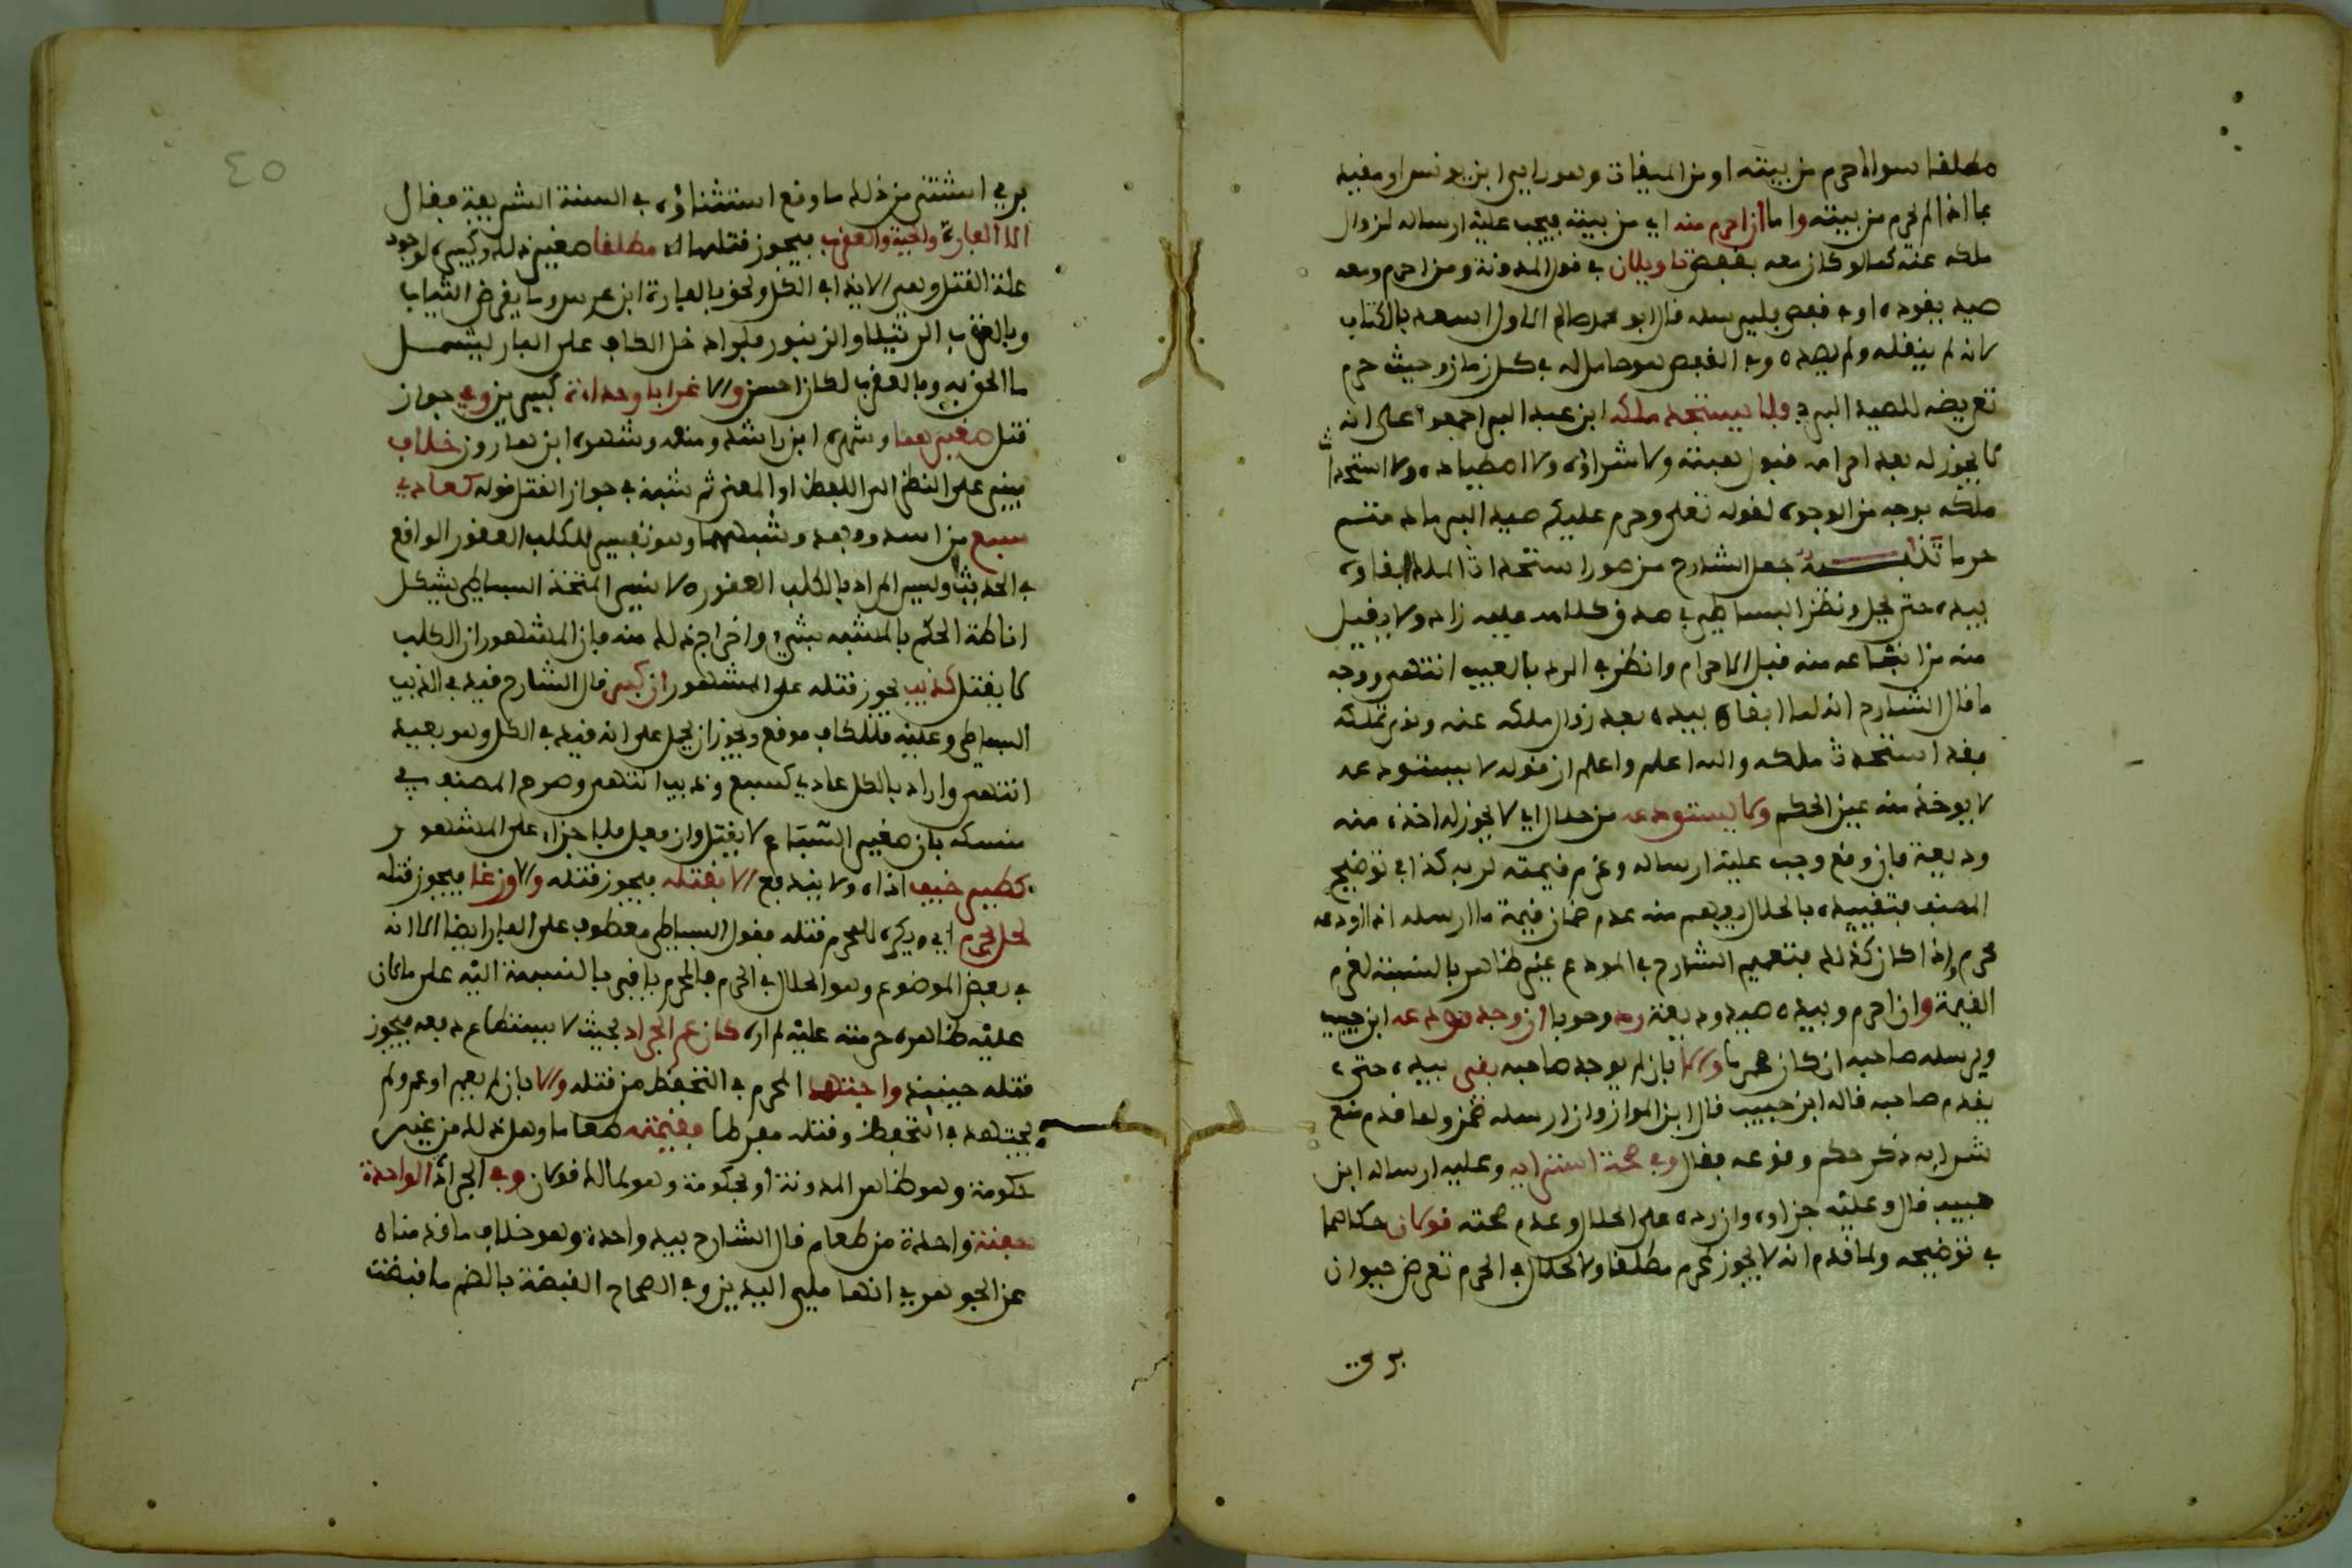 مطلقا سواء احرم من بيته او من الميقات وهو راى ابن يونس او مقيد
بما اذا لم يحرم من بيته واما ان احرم منه اي من بيته فيجب عليه ارساله لزوال
ملكه عنه كما لو كان معه بقفص تاويلان في قول المدونة ومن احرم ومعه
صيد يقوده او في قفص فليرسله قال ابو محمد صالح الاول اسعد بالكتاب
لانه لم ينقله ولم يصده وفي القفص هو حامل له في كل زمان وحيث حرم
تعريضه للصيد البري فلا يستجد ملكه ابن عبد البر اجمعوا على انه
لا يجوز له بعد احرامه قبول هبته ولا شراؤه ولا اصطياده ولا استحداث
ملكه بوجه من الوجوه لقوله تعلى وحرم عليكم صيد البر ما دمتم
حرما تنبيه جعل الشارح من صور استحداث الملك ابقاؤه
بيده حتى يحل ونظر البساطي في صدق كلامه عليه زاد ولا يقيل
منه من ابتاعه منه قبل الاحرام وانظر في الرد بالعيب انتهى ووجه
ما قال الشارح انه لما ابقاه بيده بعد زوال ملكه عنه ونوى تملكه
فقد استحدث ملكه والله اعلم واعلم ان قوله لا يستودعه
لا يوخذ منه عين الحكم ولا يستودعه من حلال اي لا يجوز له اخذه منه
وديعة فان وقع وجب عليه ارساله وغرم قيمته لربه كذا في توضيح
المصنف فتقييده بالحلال يفهم منه عدم ضمان قيمة ما ارسله اذا اودعه
محرم واذا كان كذلك فتعميم الشارح في المودع غير ظاهر بالنسبة لغرم
القيمة وان احرم وبيده صيد وديعة رد وجوبا ان وجد مودعه ابن حبيب
ويرسله صاحبه ان كان محرما والا بان لم يوجد صاحبه بقي بيده حتى
يقدم صاحبه قاله ابن حبيب قال ابن المواز وان ارسله ضمن ولما قدم منع
شرايه ذكر حكم وقوعه فقال وفي صحة اشترايه وعليه ارساله ابن
حبيب قال وعليه جزاؤه وان رده على الحلال وعدم صحته قولان حكاهما
في توضيحه ولما قدم انه لا يجوز لمحرم مطلقا ولا لحلال في الحرم تعرض حيوان
بري
بري استثنى من ذلك ما وقع استثناؤه في السنة الشريفة فقال
الا الفارة والحية والعقرب فيجوز قتلها مطلقا صغير ذلك وكبيره لوجود
علة القتل وهي الاذية في الكل ونحو بالفارة ابن عرس وما يقرض الثياب
وبالعقرب الرتيلا والزنبور فلو ادخل الكاف على الفار ليشمل
ما الحق به وبالعقرب لكان احسن والا غرابا وحداة كبيرين وفي جواز
قتل صغيرهما وشهره ابن راشد ومنعه وشهره ابن هارون خلاف
مبني على النظر الى اللفظ او المعنى ثم شبه في جواز القتل قوله كعادي
سبع من اسد وفهد وشبههما وهو تفسير للكلب العقور الواقع
في الحديث وليس المراد بالكلب العقور الانسي المتخذ البساطي يشكل
اناطة الحكم بالمشبه بشيء واخراج ذلك منه فان المشهور ان الكلب
لا يقتل كذيب يجوز قتله على المشهور ان كبر قال الشارح قيد في الذيب
البساطي وعليه فللكاف موقع ويجوز ان يحمل على انه قيد في الكل وهو بعيد
انتهى واراد بالكل عادي كسبع وذيب انتهى وصرح المصنف في
منسكه بان صغير السباع لا يقتل وان فعل فلا جزاء على المشهور
كطير خيف اذاه ولا يندفع الا بقتله فيجوز قتله والا وزغا فيجوز قتله
لحل بحرم اي ويكره للمحرم قتله فقول البساطي معطوف على الفار ايضا الا انه
في بعض الموضوع وهو الحلال في الحرم فالمحرم باقي بالنسبة اليه على ما كان
عليه ظاهره حرمته عليه لم اره كان عم الجراد بحيث لا يستطاع دفعه فيجوز
قتله حينيذ واجتهد المحرم في التحفظ من قتله والا بان لم يعم او عم ولم
يجتهد في التحفظ وقتله مفرطا فقيمته طعاما وهل ذلك من غير
حكومة وهو ظاهر المدونة او بحكومة وهو لمالك قولان وفي الجرادة الواحدة
حفنة واحدة من طعام قال الشارح بيد واحدة وهو خلاف ما قدمناه
عن الجوهري انها ملء اليدين وفي الصحاح القبضة بالضم ما قبضت
٤٥